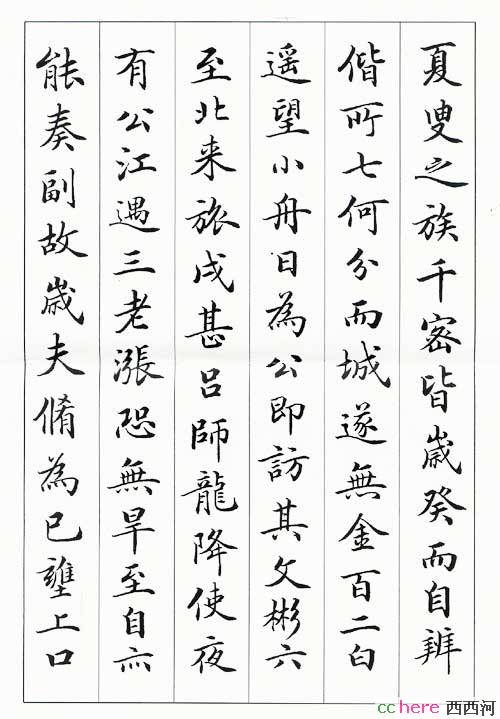 夏叟之族千密皆歲癸而自辨
偕所七何分而城遂無金百二白
遥望小舟日為公即訪其文彬六
至北来旅戌甚吕師龍降使夜
有公江遇三老漲恐無旱至自亦
能奏副故歲夫脩為已壟上口
cchere 西西河